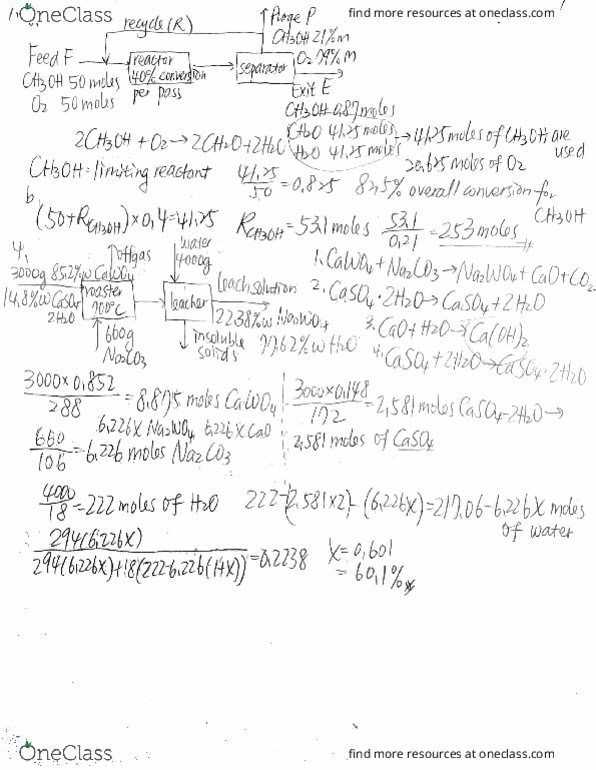 OneClass
find more resources at oneclass.com
recycle (R)
Purge P
CH3OH 21% M
O2 79% M
Feed F
CH3OH 50 moles
O2 50 moles
reactor
40% conversion
per pass
separator
Exit E
CH3OH 0.87 moles
CH2O 41.25 moles
H2O 41.25 moles
→ 41.25 moles of CH3OH are used
20.625 moles of O2
2CH3OH + O2 → 2CH2O + 2H2O
CH3OH: limiting reactant
41.25/50 = 0.825 82.5% overall conversion for CH3OH
b,
(50+RCH3OH) × 0.4 = 41.25 RCH3OH = 53.1 moles 53.1/0.21 = 253 moles
4,
3000g 85.2%w CaWO4
14.8%w CaSO4 2H2O
offgas
roaster
700°C
660g
Na2CO3
water
4000g
leacher
leach solution
22.38%w Na2WO4
77.62%w H2O
insoluble
solids
1. CaWO4 + Na2CO3 → Na2WO4 + CaO + CO2
2. CaSO4·2H2O → CaSO4 + 2H2O
3. CaO + H2O → Ca(OH)2
4. CaSO4 + 2H2O → CaSO4·2H2O
3000×0.852/288 = 8.875 moles CaWO4
3000×0.148/172 = 2.581 moles CaSO4·2H2O →
2.581 moles of CaSO4
6.226X Na2WO4 6.226X CaO
660/106 = 6.226 moles Na2CO3
4000/18 = 222 moles of H2O 222-(2.581×2)-(6.226X) = 217.06-6.226X moles of water
294(6.226X)/294(6.226X)+18(222-6.226(1+X)) = 0.2238 X = 0.601
= 60.1%
OneClass
find more resources at oneclass.com